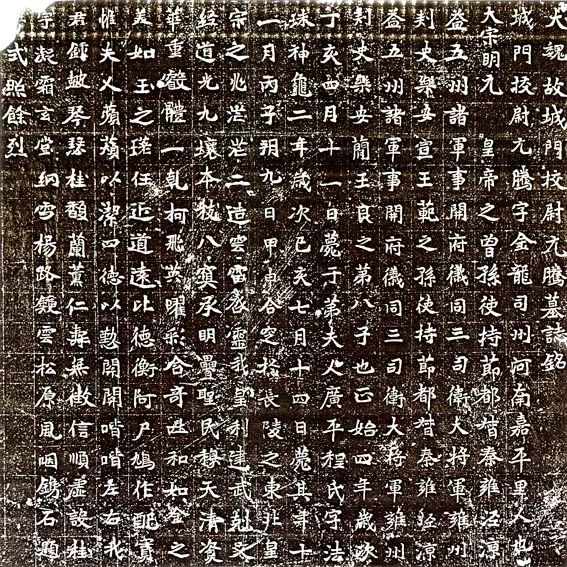 大魏故城門校尉元騰墓誌銘
城門校尉元騰字金龍司州河南嘉平里人也
大宗明元皇帝之曾孫使持節都督秦雍涇涼
益五州諸軍事開府儀同三司衛大將軍雍州
刺史樂安宣王範之孫使持節都督秦雍涇涼
益五州諸軍事開府儀同三司衛大將軍雍州
刺史樂安簡王良之第八子也正始四年歲次
丁亥四月十一日薨于第夫人廣平程氏字法
珠神龜二年歲次己亥七月十四日薨其年十
一月丙子朔九日甲申合窆於長陵之東北皇
宗之兆茫茫二造雲雷啟靈我皇利建武剋文
經道光九壤本枝八冥承明疊聖民穆天清資
華重嶷體一乹柯飛英曜彩含奇世和如金之
美如玉之瑳任近道遠比德衡阿尸鳩作配賁
惟夫人蘋蘩以潔四德以懃閑閑喈喈左右我
君鍾敬琴瑟桂馥蘭薰仁壽無徵信順虛設桂
宇凝霜玄堂網雪楊路鏗雲松原風咽鐫石題
式照餘烈